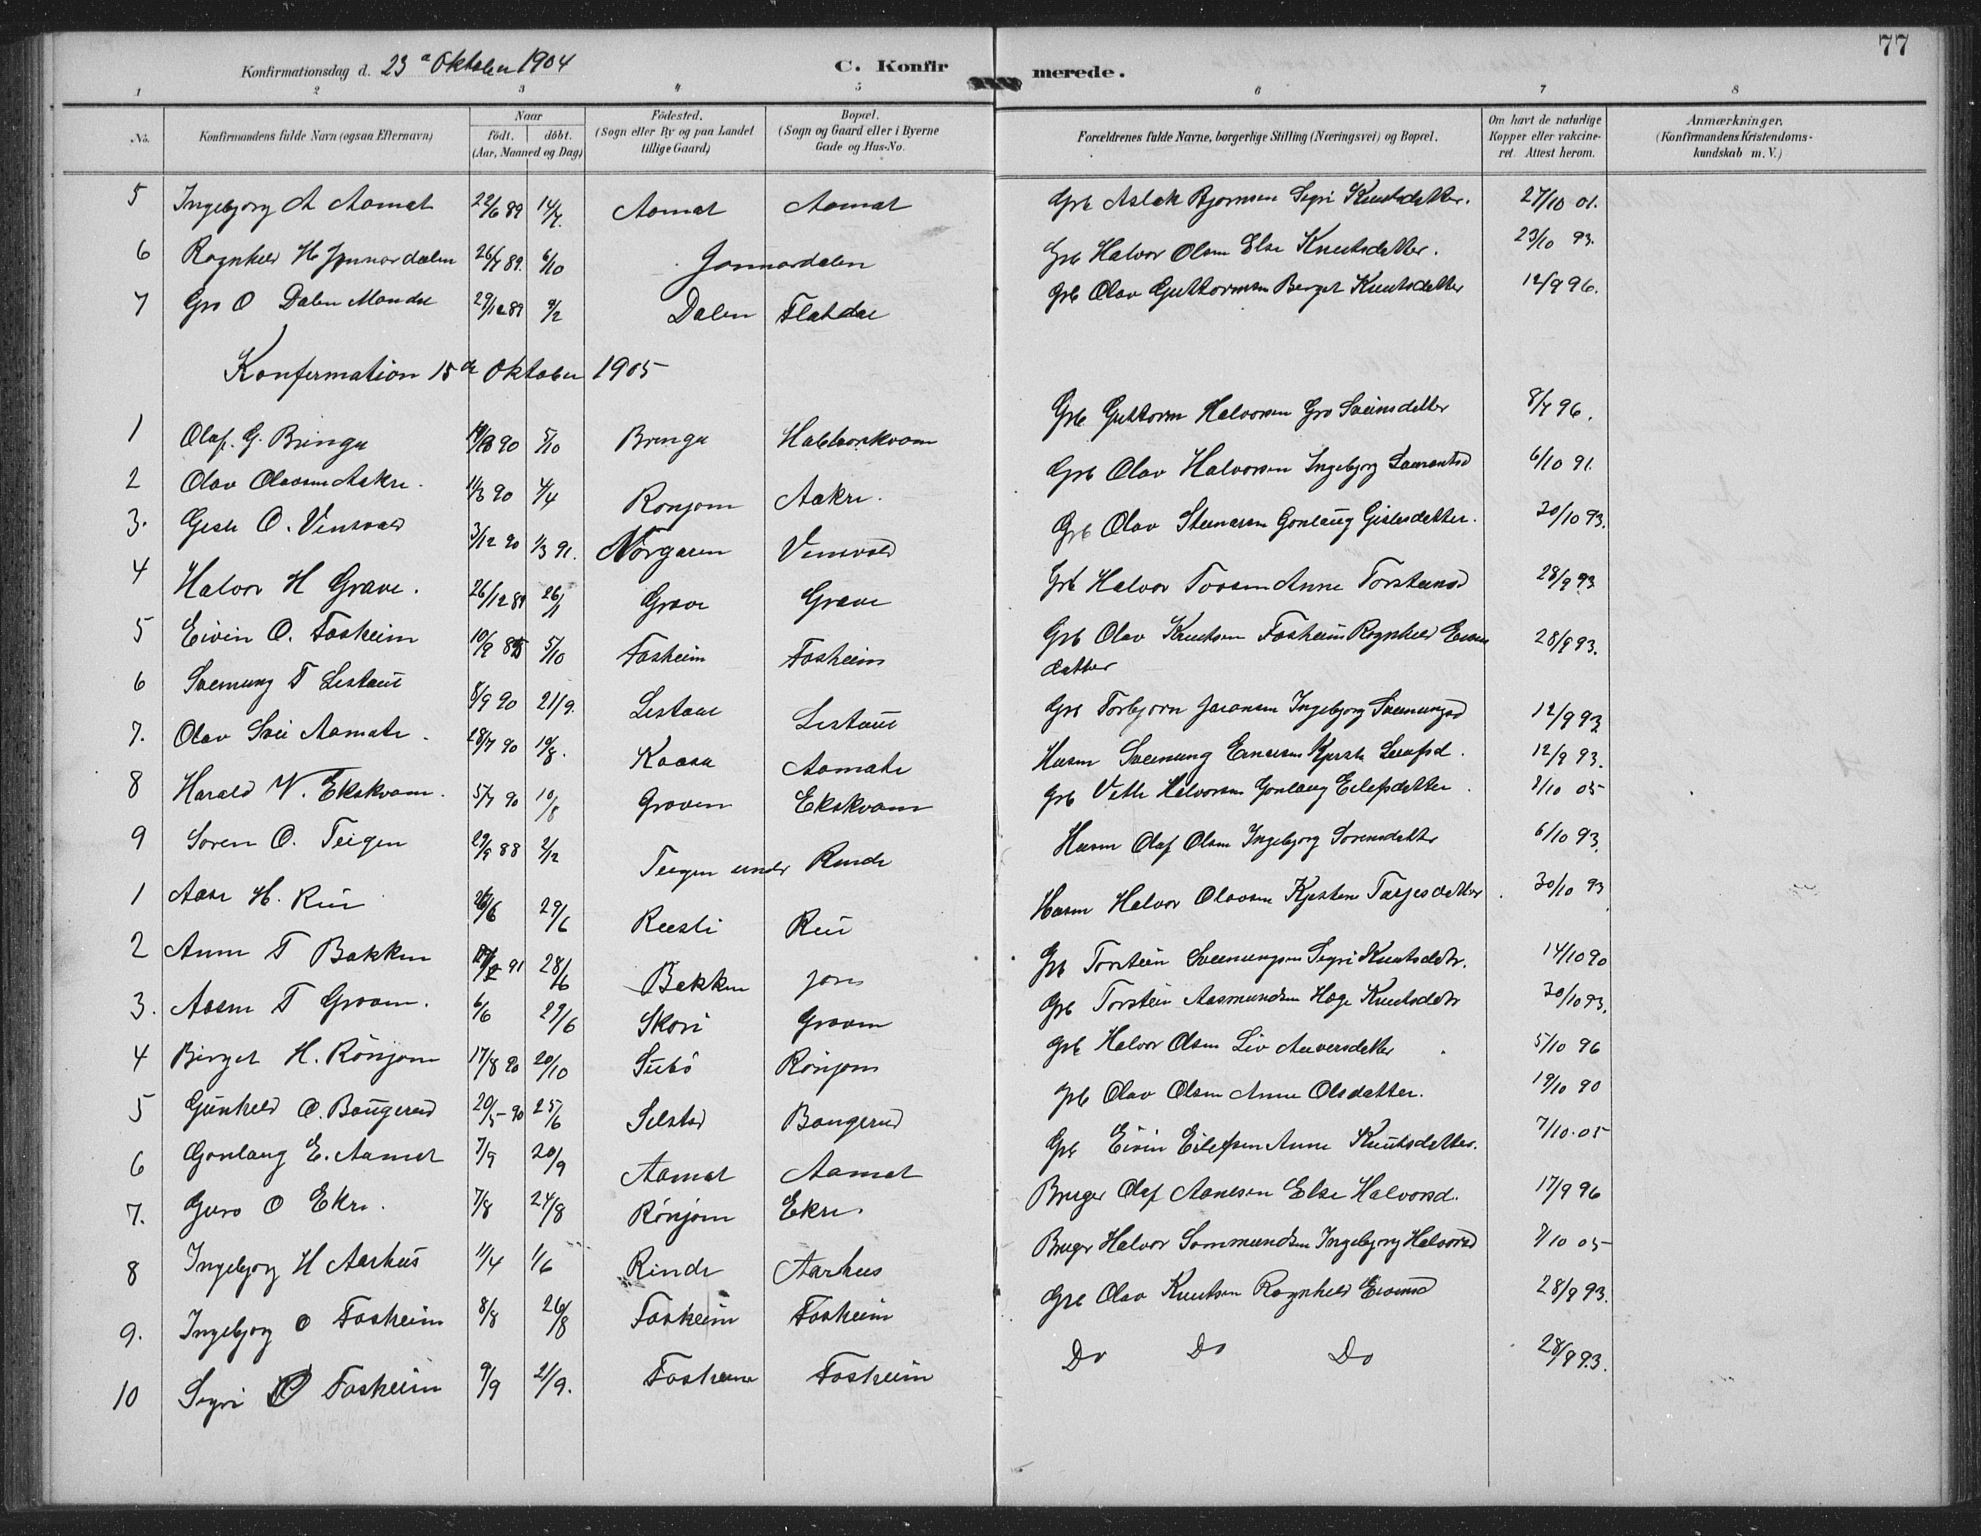 77
Konfirmationsdag d. 23 Oktober 1904 C. Konfirmerede.
1 2 3 4 5 6 7 8
No. Konfirmandens fulde Navn (ogsaa Efternavn) Naar födt. döbt. (Aar, Maaned og Dag) Födested. (Sogn eller By og paa Landet tillige Gaard) Bopæl. (Sogn og Gaard eller i Byerne Gade og Hus-No. Forældrenes fulde Navne, borgerlige Stilling (Næringsvei) og Bopæl. Om havt de naturlige Kopper eller vakcineret. Attest herom. Anmærkninger. (Konfirmandens Kristendomskundskab m. V.)
5 Ingebjorg A Aamat 22/6 89 14/7 Aamat Aamat Grb Aslak Bjornsen Sigri Knutsdatter. 27/10 01.
6 Ragnhild H Jonnordalen 26/7 89. 6/10 Jonnordalen Grb Halvor Olsen Else Knutsdatter. 23/10 93.
7 Gro O Dalen Mandt 29/12 89 9/2 Dalen Flatdal Grb Olav Guttormsen Berget Knutsdatter 12/9 96.
Konfermation 15de Oktober 1905
1 Olaf. G. Bringa 90 5/10 Bringa Grb Guttorm Halvorsen Gro Sveinsdatter 8/7 96.
2 Olav Olavsen Aakre. 11/3 90 4/4 Ronjom Aakre. Grb Olav Halvorsen Ingebjorg 6/10 91.
3. Gisle O. Vinsvald 3/12 90 1/3 91. Norgaren Vinsvald Grb Olav Steinarsen Gonlaug Gislesdatter. 30/10 93.
4 Halvor H Grave. 26/12 89 26/1 Grave Grave Grb Halvor Tovsen Anne Torsteinsd 28/9 93
5 Eivin O. Fosheim 10/9 5/10 Fosheim Fosheim Grb Olav Knutsen Fosheim Ragnhild Eivinsdatter 28/9 93.
6 Sveinung T Listaul 8/9 90 21/9. Listaul Listaul Grb Torbjorn Ingebjorg Sveinungsd 12/9 93
7. Olav Svei Aamate. 28/7 90 19/8. Kaasa Aamate Husm Sveinung 12/9 93.
8 Harald V. Ekskvam. 5/7 90 10/8 Groven Ekskvam Grb Vetle Halvorsen Gonlaug Eilefsdatter 7/10 05
9 Soren O. Teigen 29/9 88 2/12 Teigen under Rinde Husm Olaf Olsen Ingebjorg Sorensdatter 6/10 93.
1 Aase H. Rui 26/6 29/6 Ruesli Rui Husm Halvor Olavsen Kjersten Tarjesdatter. 30/10 93
2 Anne T Bakken 91 28/6 Bakken Grb Torstein Sveinungsen Sigri Knutsdtr. 14/10 90
3. Aasne T Groven. 6/6 29/6 Skori Groven Grb Torstein Aasmundsen Hæge Knutsdtr 30/10 93.
4 Birget H. Rönjom 17/8 90 20/10 Subö Rönjom Grb Halvor Olsen Liv Auversdatter. 5/10 96
5 Gunhild O. Baugerud 20/5 90 25/6 Selstad Baugerud Grb Olav Olsen Anne Olsdatter. 19/10 90
6 Gonlaug E. Aamat 7/9 20/9 Aamat Aamat Grb Eivin Eilefsen Anne Knutsdatter. 7/10. 05
7. Guro O Ekre. 7/8 24/8 Rönjom Ekre. Bruger Olaf Aanesen Else Halvorsd. 17/9 96
8 Ingebjorg H Aarhus 11/4 1/6 Rinde Aarhus Bruger Halvor Sommundsen Ingebjorg Halvorsd 7/10 05
9. Ingebjorg O Fosheim 8/8 26/8 Fosheim Fosheim Grb Olav Knutsen Ragnhild Eivinsd 28/9 93.
10 Sigri O Fosheim 9/9 21/9. Fosheim Fosheim Do Do Do 28/9 93.